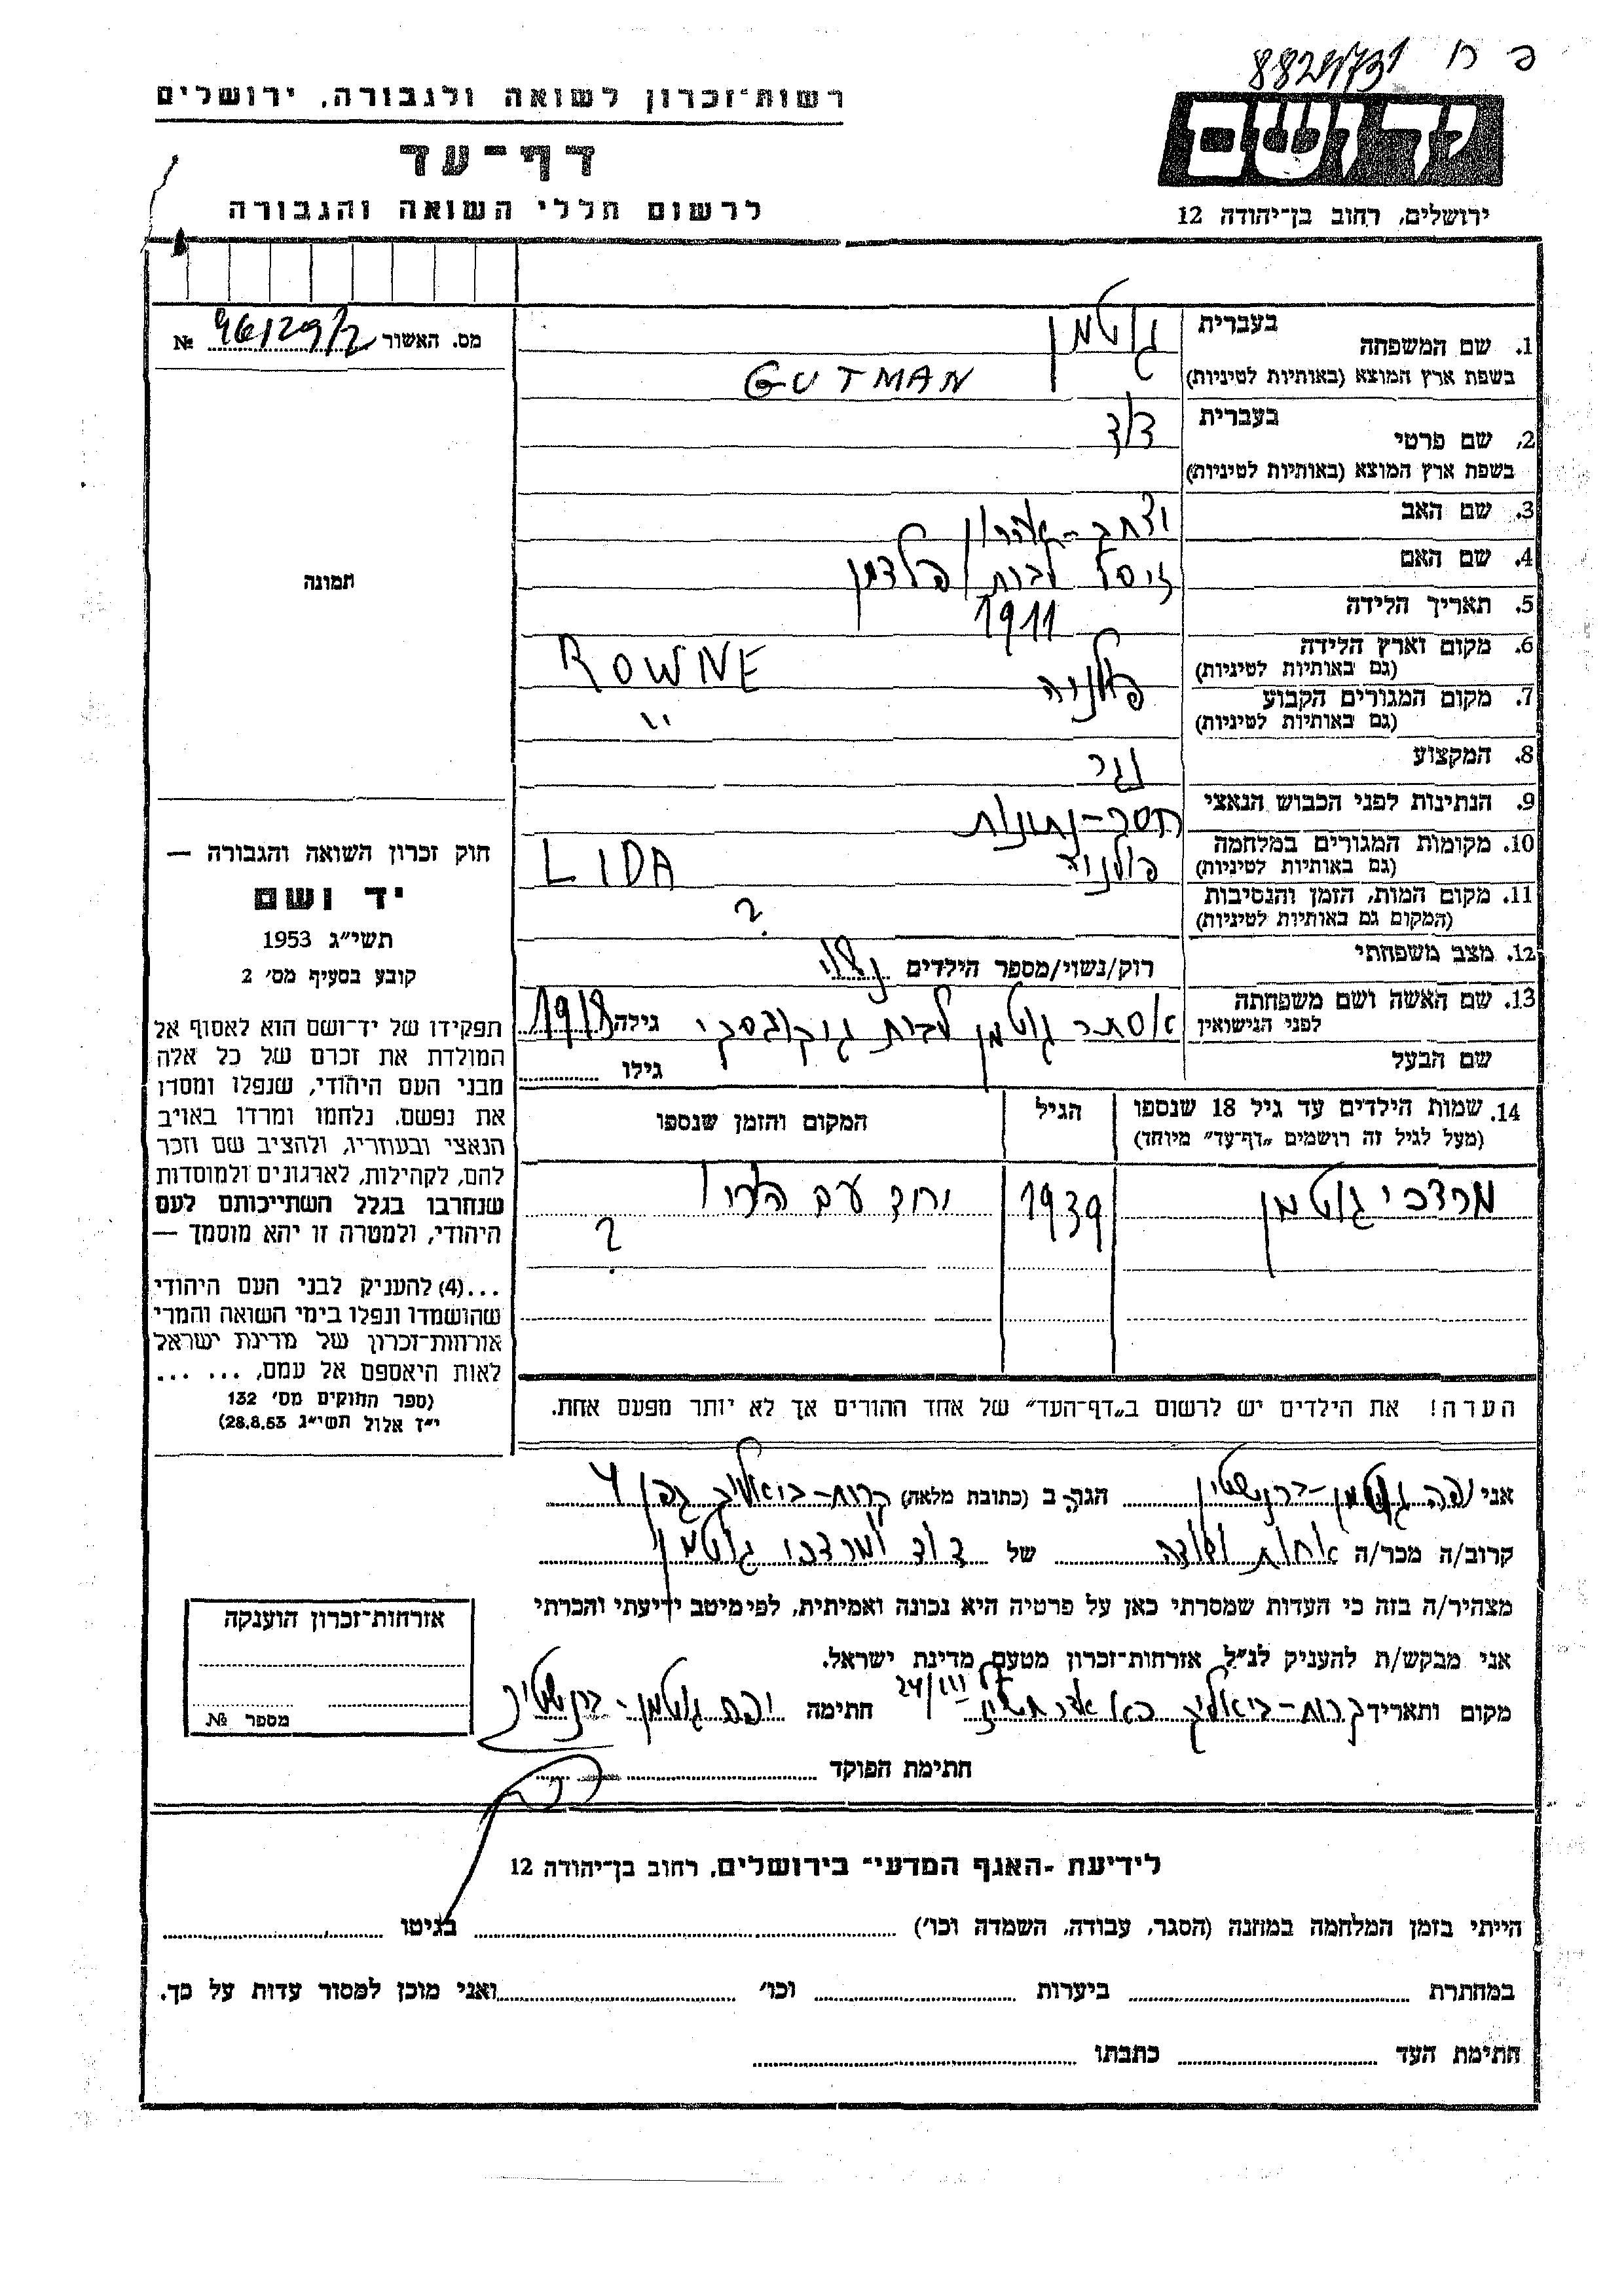 פ ח
ידושם
ירושלים, רחוב בן־יהודה 12
רשות־זכרון לשואה ולגבורה, ירושלים
דף־עד
לרשום חללי השואה והגבורה
מס. האשור 96129/2 №
תמונה
1. שם המשפחה בעברית גוטמן
בשפת ארץ המוצא (באותיות לטיניות) GUTMAN
2. שם פרטי בעברית דוד
בשפת ארץ המוצא (באותיות לטיניות)
3. שם האב יצחק-אהרון
4. שם האם זיסל לבית פלדמן
5. תאריך הלידה 1911
6. מקום וארץ הלידה
(גם באותיות לטיניות) פולניה ROWNE
7. מקום המגורים הקבוע
(גם באותיות לטיניות) "
8. המקצוע נגר
9. הנתינות לפני הכבוש הנאצי חסר-נתינות
10. מקומות המגורים במלחמה
(גם באותיות לטיניות) פולניה LIDA
11. מקום המות, הזמן והנסיבות
(המקום גם באותיות לטיניות) ?
12. מצב משפחתי רוק/נשוי/מספר הילדים נשוי
13. שם האשה ושם משפחתה
לפני הנישואין אסתר גוטמן לבית גילה 1918
שם הבעל גילו
14. שמות הילדים עד גיל 18 שנספו הגיל המקום והזמן שנספו
(מעל לגיל זה רושמים „דף־עד" מיוחד)
מרדכי גוטמן 1939 יחד עם הוריו
?
הערה! את הילדים יש לרשום ב„דף־העד" של אחד ההורים אך לא יותר מפעם אחת.
חוק זכרון השואה והגבורה —
יד ושם
תשי״ג 1953
קובע בסעיף מס׳ 2
תפקידו של יד־ושם הוא לאסוף אל
המולדת את זכרם של כל אלה
מבני העם היהודי, שנפלו ומסרו
את נפשם, נלחמו ומרדו באויב
הנאצי ובעוזריו, ולהציב שם וזכר
להם, לקהילות, לארגונים ולמוסדות
שנחרבו בגלל השתייכותם לעם
היהודי, ולמטרה זו יהא מוסמך —
...(4) להעניק לבני העם היהודי
שהושמדו ונפלו בימי השואה והמרי
אזרחות־זכרון של מדינת ישראל
לאות היאספם אל עמם, ... ...
(ספר החוקים מס׳ 132
י״ז אלול תשי״ג 28.8.53)
אני יפה גוטמן-ברנשטיין הגר ב (כתובת מלאה) קרית-ביאליק גפן 4
קרוב/ה מכר/ה אחות ודודה של דוד ומרדכי גוטמן
מצהיר/ה בזה כי העדות שמסרתי כאן על פרטיה היא נכונה ואמיתית, לפי מיטב ידיעתי והכרתי
אני מבקש/ת להעניק לנ״ל אזרחות־זכרון מטעם מדינת ישראל.
מקום ותאריך קרית-ביאליק 24/III חתימה יפה גוטמן-ברנשטיין
חתימת הפוקד
אזרחות־זכרון הוענקה
מספר №
לידיעת ־האגף המדעי־ בירושלים, רחוב בן־יהודה 12
הייתי בזמן המלחמה במחנה (הסגר, עבודה, השמדה וכו׳) בגיטו
במחתרת ביערות וכו׳ ואני מוכן למסור עדות על כך.
חתימת העד כתבתו